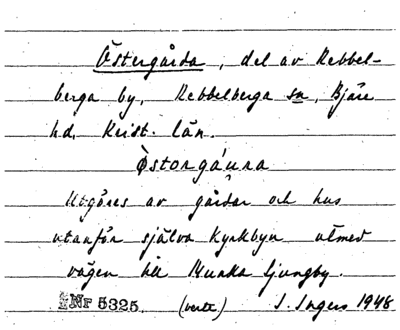 Östergårda, del av Rebbel-
berga by, Rebbelberga sn, Bjäre
hd, Krist. län.
Ö̀storgáụna
Utgöres av gårdar och hus
utanför själva kyrkbyn utmed
vägen till Munka Ljungby.
Nr 5325. (verte) I. Ingers 1948